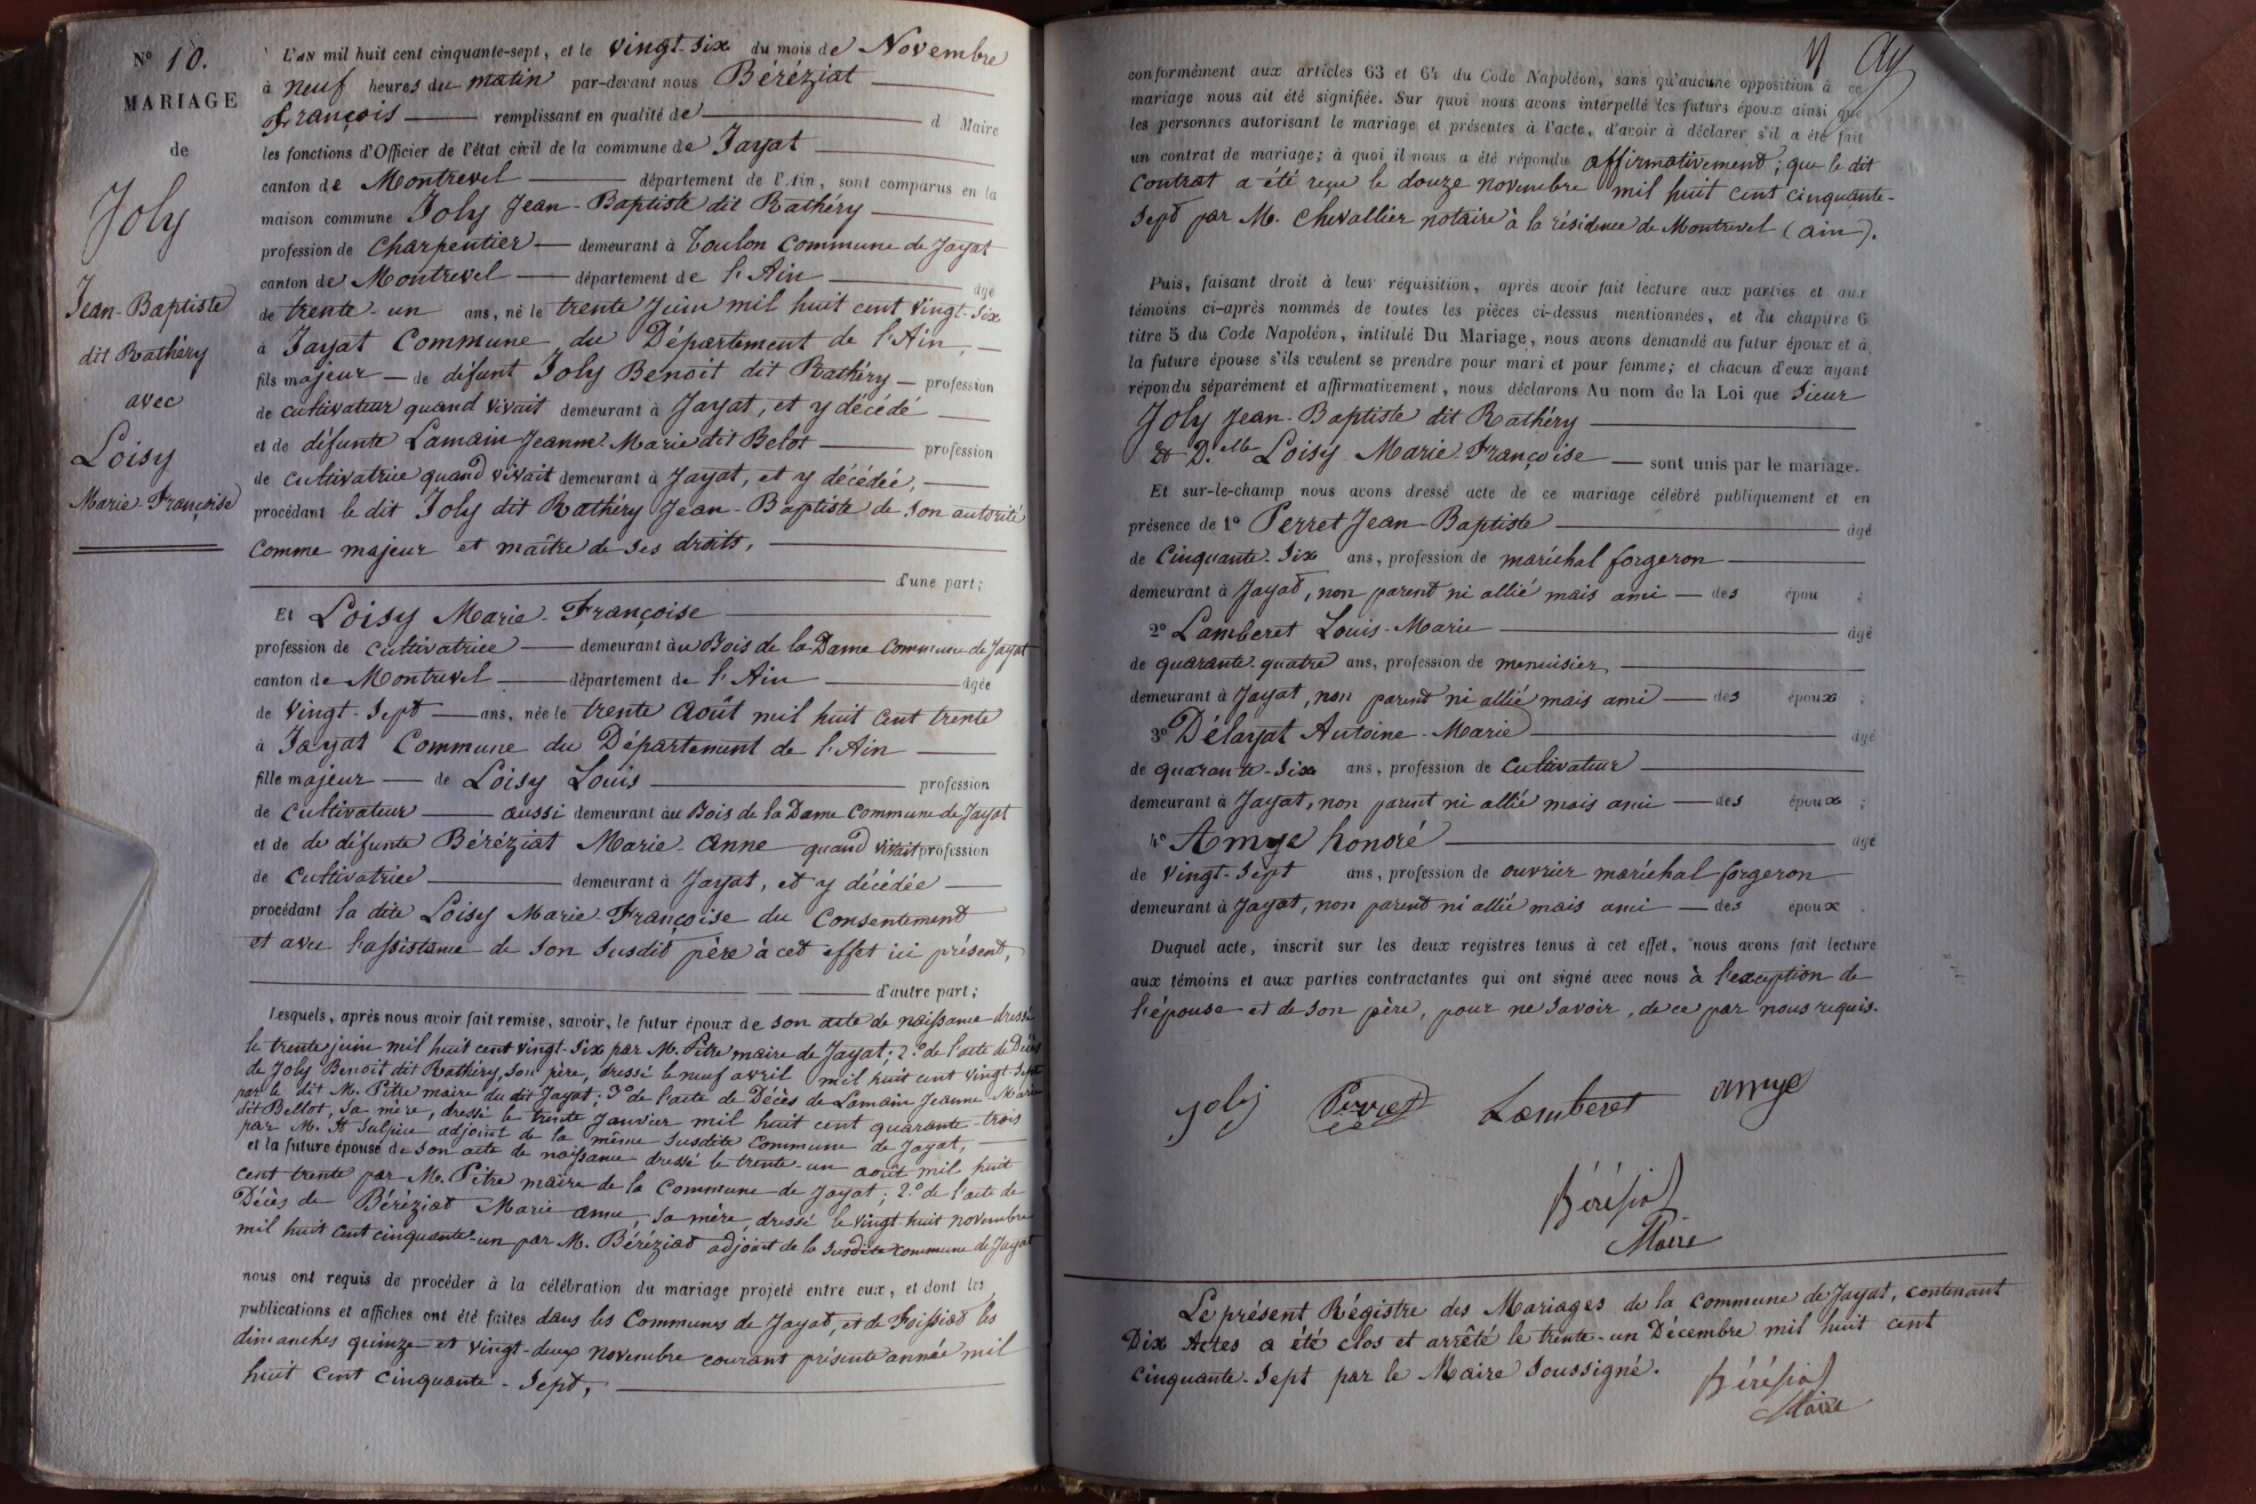 N° 10.
MARIAGE
de
Joly
Jean-Baptiste
dit Rathéry
avec
Loisy
Marie-Françoise
L'AN mil huit cent cinquante-sept, et le vingt-six du mois de Novembre
à neuf heures du matin par-devant nous Béréziat
François remplissant en qualité de d Maire
les fonctions d'Officier de l'état civil de la commune de Jayat
canton de Montrevel département de l'Ain, sont comparus en la
maison commune Joly Jean-Baptiste dit Rathéry
profession de Charpentier demeurant à Toulon Commune de Jayat
canton de Montrevel département de l'Ain âgé
de trente-un ans, né le trente Juin mil huit cent vingt-six
à Jayat Commune du Département de l'Ain,
fils majeur de défunt Joly Benoit dit Rathéry profession
de cultivateur quand vivait demeurant à Jayat, et y décédé
et de défunte Lamain Jeanne Marie dit Belot profession
de cultivatrice quand vivait demeurant à Jayat, et y décédée,
procédant le dit Joly dit Rathéry Jean-Baptiste de son autorité
comme majeur et maître de ses droits,
d'une part;
Et Loisy Marie-Françoise
profession de cultivatrice demeurant au Bois de la Dame Commune de Jayat
canton de Montrevel département de l'Ain âgée
de vingt-sept ans, née le trente Août mil huit cent trente
à Jayat Commune du Département de l'Ain
fille majeur de Loisy Louis profession
de cultivateur aussi demeurant au Bois de la Dame Commune de Jayat
et de de défunte Béréziat Marie-Anne quand vivait profession
de Cultivatrice demeurant à Jayat, et y décédée
procédant la dite Loisy Marie-Françoise du Consentement
et avec l'assistance de son susdit père à cet effet ici présent,
d'autre part;
Lesquels, après nous avoir fait remise, savoir, le futur époux de son acte de naissance dressé
le trente juin mil huit cent vingt-six par M. Pitre maire de Jayat; 2.° de l'acte de Décès
de Joly Benoit dit Rathéry, son père, dressé le neuf avril mil huit cent vingt-sept
par le dit M. Pitre maire du dit Jayat; 3° de l'acte de Décès de Lamain Jeanne Marie
dit Bellot, sa mère, dressé le trente Janvier mil huit cent quarante-trois
par M. St Sulpice adjoint de la même susdite Commune de Jayat,
et la future épouse de son acte de naissance dressé le trente-un août mil huit
cent trente par M. Pitre maire de la Commune de Jayat; 2.° de l'acte de
Décès de Béréziat Marie anne, sa mère, dressé le vingt huit novembre
mil huit cent cinquante-un par M. Béréziat adjoint de la susdite commune de Jayat
nous ont requis de procéder à la célébration du mariage projeté entre eux, et dont les
publications et affiches ont été faites dans les Communes de Jayat, et de Foissiat les
dimanches quinze et vingt-deux novembre courant présente année mil
huit cent cinquante-sept,
conformément aux articles 63 et 64 du Code Napoléon, sans qu'aucune opposition à ce
mariage nous ait été signifiée. Sur quoi nous avons interpellé les futurs époux ainsi que
les personnes autorisant le mariage et présentes à l'acte, d'avoir à déclarer s'il a été fait
un contrat de mariage; à quoi il nous a été répondu affirmativement; que le dit
Contrat a été reçu le douze novembre mil huit cent cinquante-
sept par M. Chevallier notaire à la résidence de Montrevel (ain).
Puis, faisant droit à leur réquisition, après avoir fait lecture aux parties et aux
témoins ci-après nommés de toutes les pièces ci-dessus mentionnées, et du chapitre 6
titre 5 du Code Napoléon, intitulé Du Mariage, nous avons demandé au futur époux et à
la future épouse s'ils veulent se prendre pour mari et pour femme; et chacun d'eux ayant
répondu séparément et affirmativement, nous déclarons Au nom de la Loi que Sieur
Joly Jean-Baptiste dit Rathéry
Et D.elle Loisy Marie-Françoise sont unis par le mariage.
Et sur-le-champ nous avons dressé acte de ce mariage célébré publiquement et en
présence de 1° Perret Jean-Baptiste âgé
de Cinquante-six ans, profession de maréchal forgeron
demeurant à Jayat, non parent ni allié mais ami des épou ;
2° Lamberet Louis-Marie âgé
de quarante-quatre ans, profession de menuisier,
demeurant à Jayat, non parent ni allié mais ami des époux ;
3° Délayat Antoine-Marie âgé
de quarante-six ans, profession de Cultivateur
demeurant à Jayat, non parent ni allié mais ami des époux ;
4° Amye honoré âgé
de vingt-sept ans, profession de ouvrier maréchal forgeron
demeurant à Jayat, non parent ni allié mais ami des époux .
Duquel acte, inscrit sur les deux registres tenus à cet effet, nous avons fait lecture
aux témoins et aux parties contractantes qui ont signé avec nous à l'exception de
l'épouse et de son père, pour ne savoir, de ce par nous requis.
joly Perret Lamberet amye
Béréziat
Maire
Le présent Régistre des Mariages de la Commune de Jayat, contenant
Dix Actes a été clos et arrêté le trente-un Décembre mil huit cent
cinquante-sept par le Maire Soussigné.
Béréziat
Maire